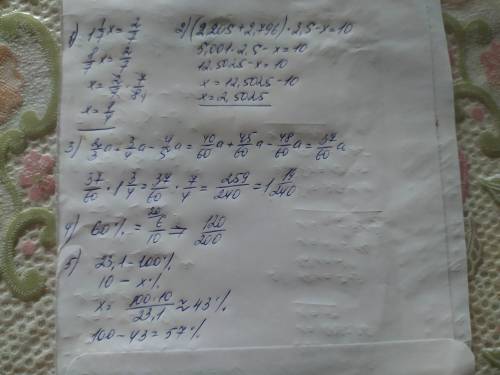 2) (2,205+2,796)·2,5-x=10
5,001·2,5-x=10
12,5025-x=10
x=12,5025-10
x=2,5025
3) 2/3a+3/4a-4/5a=40/60a+45/60a-48/60a=37/60a
37/60·1 3/4=37/60·7/4=259/240=1 19/240
4) 60%=
120/200
5) 23,1-100%
10-x%
x=100·10/23,1≈43%
100-43=57%